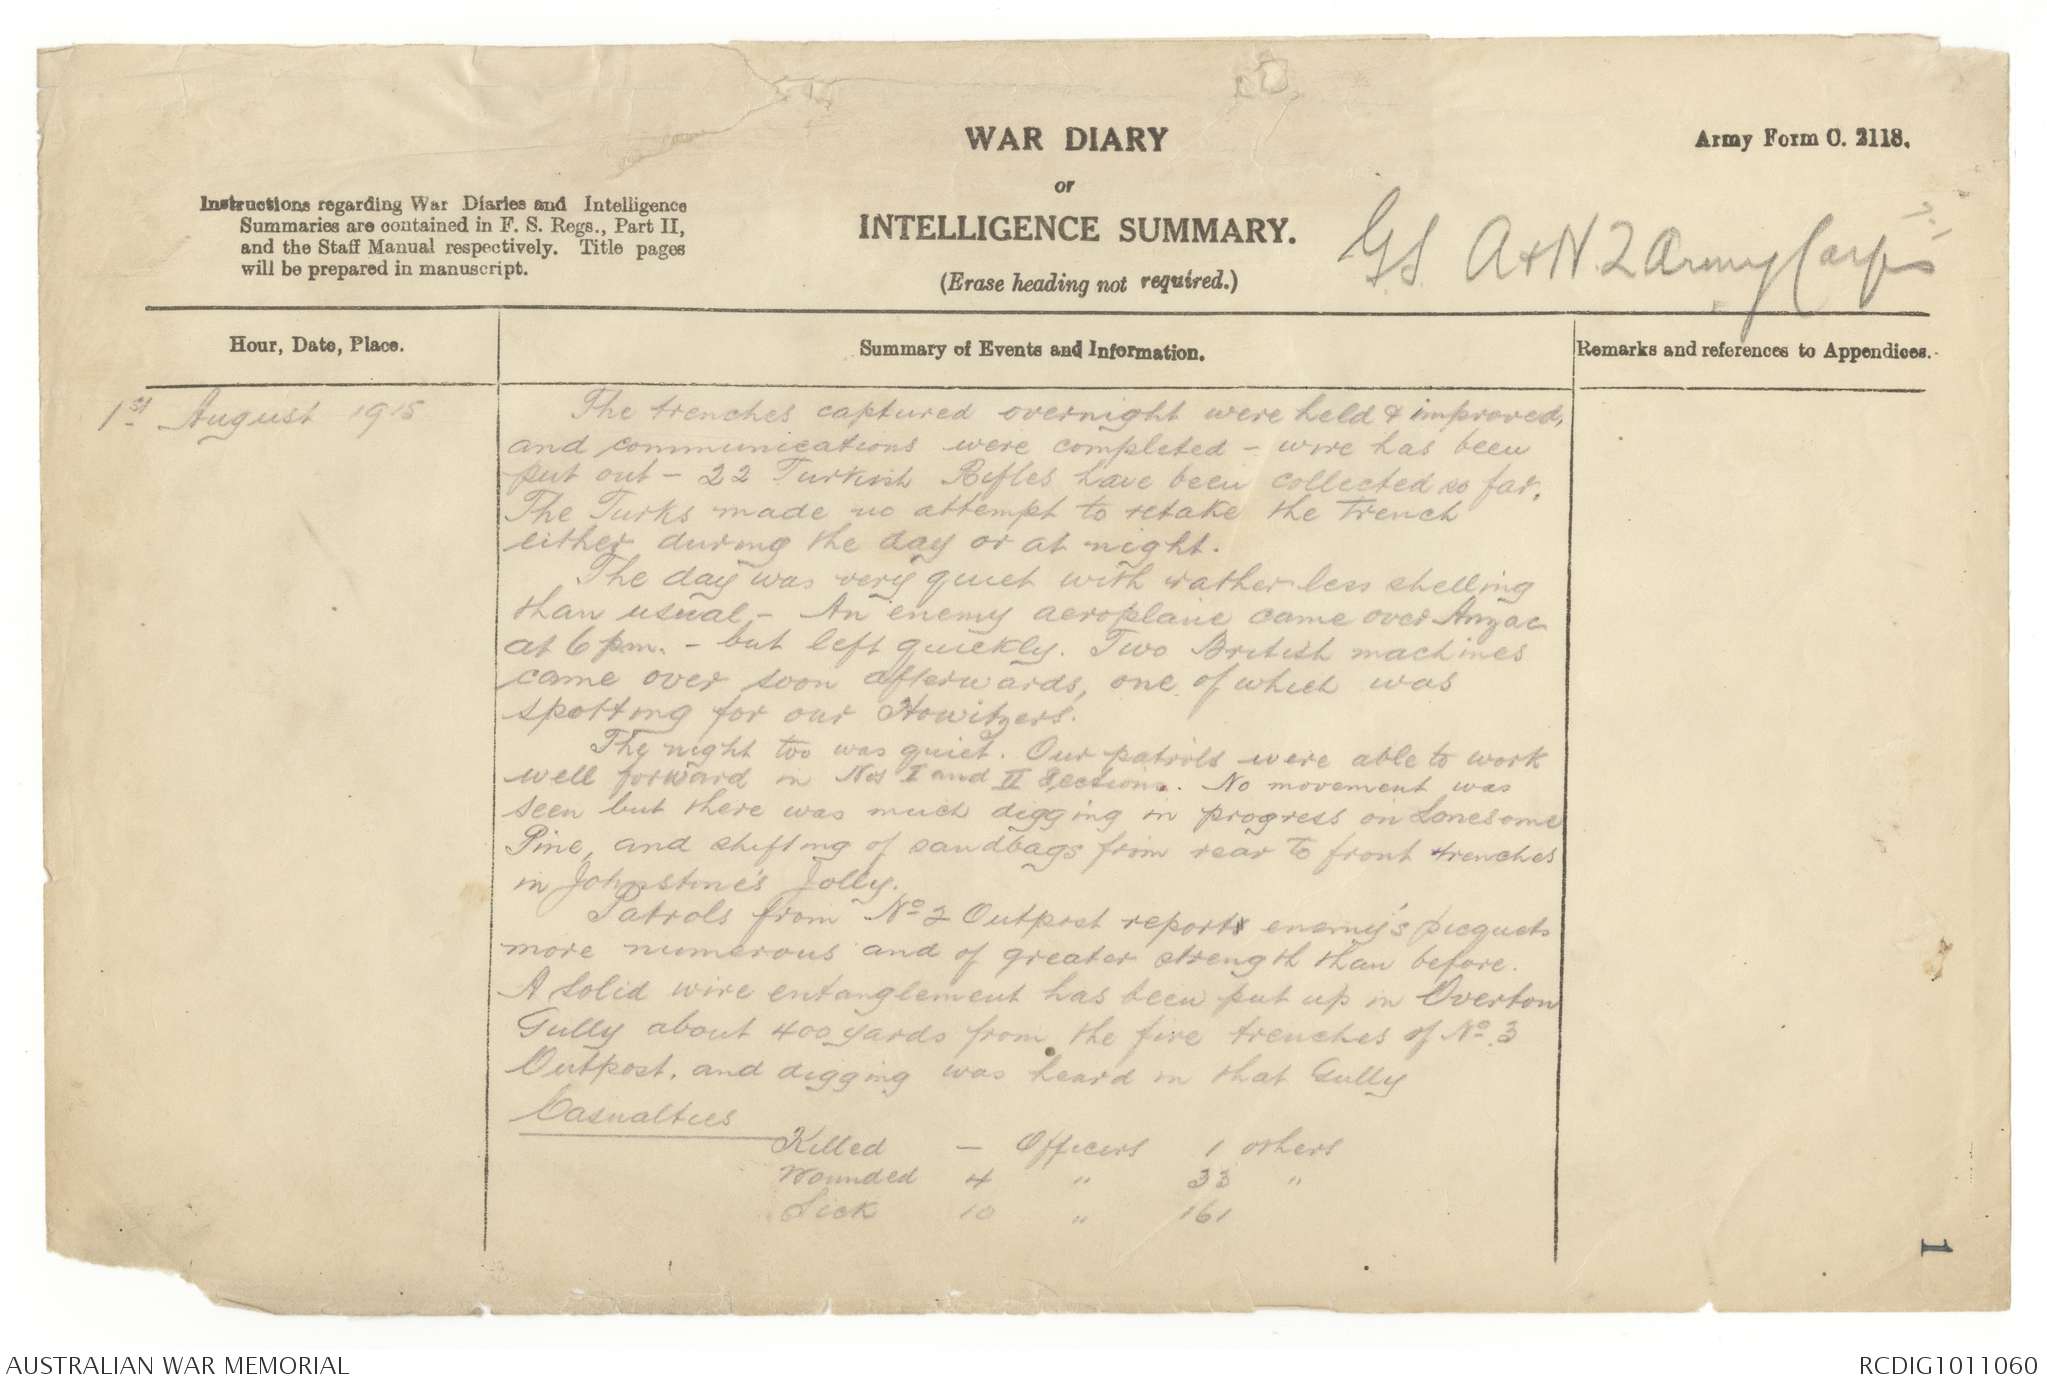 WAR DIARY
or
INTELLIGENCE SUMMARY.
(Erase heading not required.)
Army Form C. 2118.
Instructions regarding War Diaries and Intelligence
Summaries are contained in F. S. Regs., Part II,
and the Staff Manual respectively. Title pages
will be prepared in manuscript.
GS A+N.Z Army Corps
Hour, Date, Place.
Summary of Events and Information.
Remarks and references to Appendices.
1st August 1915
The trenches captured overnight were held & improved,
and communications were completed – wire has been
put out – 22 Turkish Rifles have been collected so far.
The Turks made no attempt to retake the trench
either during the day or at night.
The day was very quiet with rather less shelling
than usual – An enemy aeroplane came over Anzac
at 6 pm. – but left quickly. Two British machines
came over soon afterwards, one of which was
spotting for our Howitzers.
The night too was quiet. Our patrols were able to work
well forward in Nos I and II Sections. No movement was
seen but there was much digging in progress on Lonesome
Pine, and shifting of sandbags from rear to front trenches
in Johnstone's Jolly.
Patrols from No 2 Outpost report enemy's picquets
more numerous and of greater strength than before.
A solid wire entanglement has been put up in Overton
Gully about 400 yards from the fire trenches of No. 3
Outpost, and digging was heard in that Gully
Casualties
Killed – Officers 1 others
Wounded 4 " 33 "
Sick 10 " 161
1
AUSTRALIAN WAR MEMORIAL
RCDIG1011060